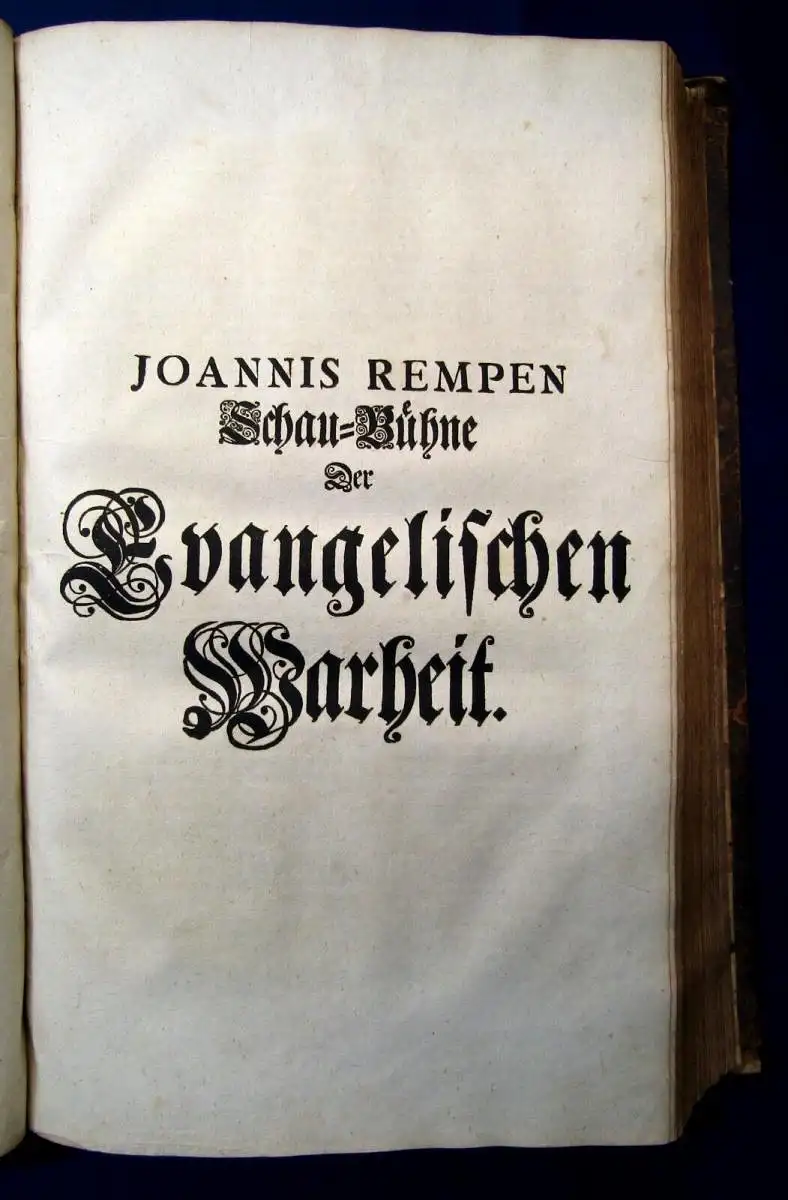 JOANNIS REMPEN
Schau=Bühne
Der
Evangeliſchen
Warheit.